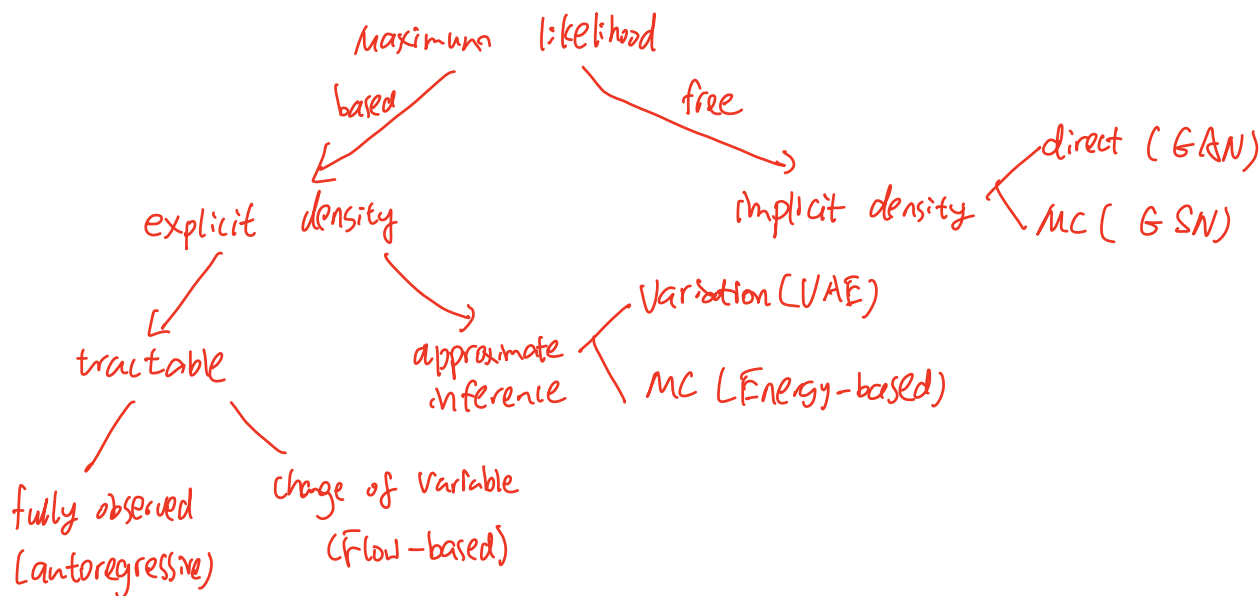 Maximum likelihood
based
free
explicit density
implicit density
direct (GAN)
MC (GSN)
tractable
approximate
inference
Variation (VAE)
MC (Energy-based)
fully observed
(autoregressive)
change of variable
(Flow-based)